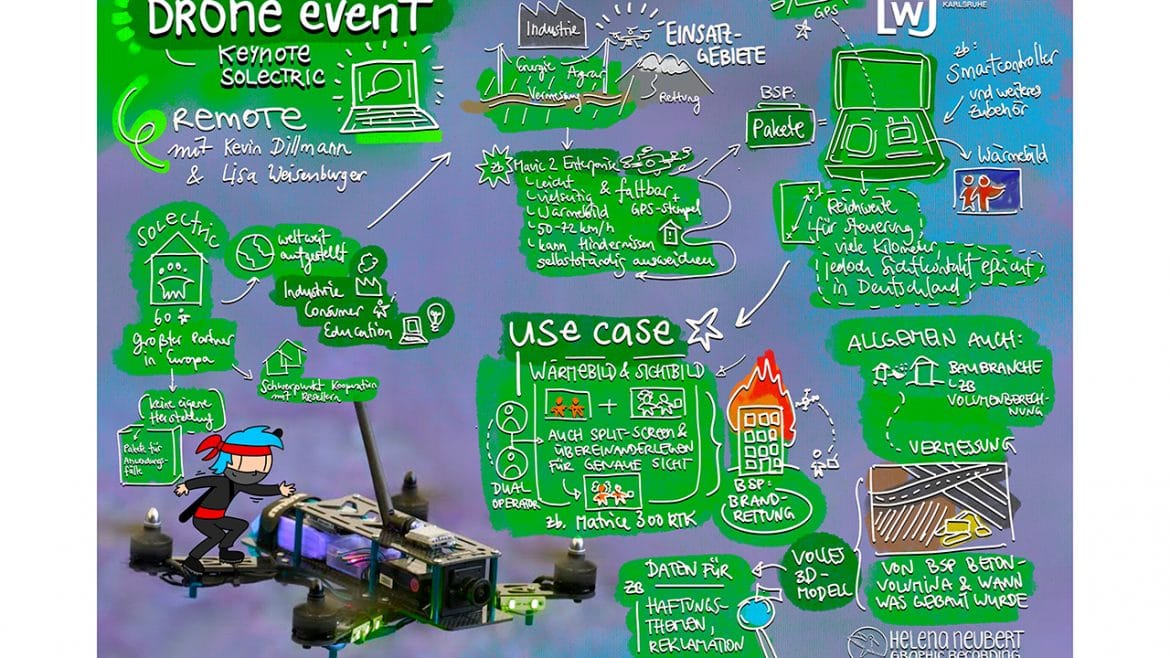 DRONE EVENT
KEYNOTE
SOLECTRIC
REMOTE
mit Kevin Dillmann
& Lisa Weisenburger
SOLECTRIC
60
Größter Partner
in Europa
weltweit
aufgestellt
Industrie
Consumer
Education
Schwerpunkt Kooperation
mit Resellern
keine eigene
Herstellung
Pakete für
Anwendungs-
fälle
Industrie
EINSATZ-
GEBIETE
Energie
Agrar
Vermessung
Rettung
zB
Mavic 2 Enterprise
leicht & faltbar
vielseitig
+
GPS-Stempel
Wärmebild
50-72 km/h
kann Hindernissen
selbstständig ausweichen
BSP:
Pakete =
GPS
W
KARLSRUHE
zb:
Smartcontroller
und weiteres
Zubehör
Wärmebild
Reichweite
für Steuerung
viele Kilometer
jedoch Sichtkontakt Pflicht
in Deutschland
USE CASE
WÄRMEBILD & SICHTBILD
+
AUCH SPLIT-SCREEN &
ÜBEREINANDERLEGEN
FÜR GENAUE SICHT
DUAL
OPERATOR
zb. Matrice 300 RTK
BSP:
BRAND-
RETTUNG
ALLGEMEIN AUCH:
BAUBRANCHE
ZB
VOLUMENBERECH-
NUNG
VERMESSUNG
VON BSP BETON-
VOLUMINA & WANN
WAS GEBAUT WURDE
VOLLES
3D-
MODELL
DATEN FÜR
ZB
HAFTUNGS-
THEMEN,
REKLAMATION
HELENA NEUBERT
GRAPHIC RECORDING